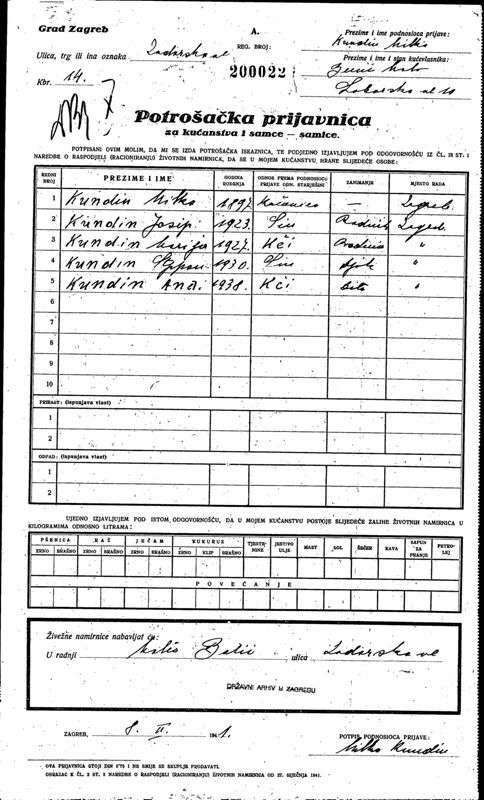 Grad Zagreb
Ulica, trg ili ina oznaka Zadarska ul
Kbr. 14.
A.
REG. BROJ:
200022
Prezime i ime podnosioca prijave:
Kundin Mitko
Prezime i ime i stan kućevlasnika:
Potrošačka prijavnica
za kućanstva i samce — samice.
POTPISANI OVIM MOLIM, DA MI SE IZDA POTROŠAČKA ISKAZNICA, TE PODJEDNO IZJAVLJUJEM POD ODGOVORNOŠĆU IZ ČL. 18 ST. 1
NAREDBE O RASPODJELI (RACIONIRANJU) ŽIVOTNIH NAMIRNICA, DA SE U MOJEM KUĆANSTVU HRANE SLIJEDEĆE OSOBE:
REDNI BROJ PREZIME I IME GODINA ROĐENJA ODNOS PREMA PODNOSIOCU PRIJAVE ODN. STARJEŠINI ZANIMANJE MJESTO RADA
1 Kundin Mitko 1897 — Zagreb
2 Kundin Josip 1923. Sin Radnik Zagreb
3 Kundin Marija 1927. Kći Radnica "
4 Kundin Stjepan 1930. Sin "
5 Kundin 1938. Kći "
6
7
8
9
10
PRIRAST: (ispunjava vlast)
1
2
OTPAD: (ispunjava vlast)
1
2
UJEDNO IZJAVLJUJEM POD ISTOM ODGOVORNOŠĆU, DA U MOJEM KUĆANSTVU POSTOJE SLIJEDEĆE ZALIHE ŽIVOTNIH NAMIRNICA U
KILOGRAMIMA ODNOSNO LITRAMA:
PŠENICA RAŽ JEČAM KUKURUZ TJESTENINE JESTIVO ULJE MAST SOL ŠEĆER KAVA SAPUN ZA PRANJE PETROLEJ
ZRNO BRAŠNO ZRNO BRAŠNO ZRNO BRAŠNO ZRNO KLIP BRAŠNO
POVEĆANJE
Živežne namirnice nabavljat ću:
U radnji ulica Zadarska ul
DRŽAVNI ARHIV U ZAGREBU
ZAGREB, 8. II. 1941.
POTPIS PODNOSIOCA PRIJAVE:
Mitko Kundin
OVA PRIJAVNICA STOJI DIN 0'75 I NE SMIJE SE SKUPLJE PRODAVATI.
OBRAZAC K ČL. 2 ST. 2 NAREDBE O RASPODJELI (RACIONIRANJU) ŽIVOTNIH NAMIRNICA OD 27. SIJEČNJA 1941.